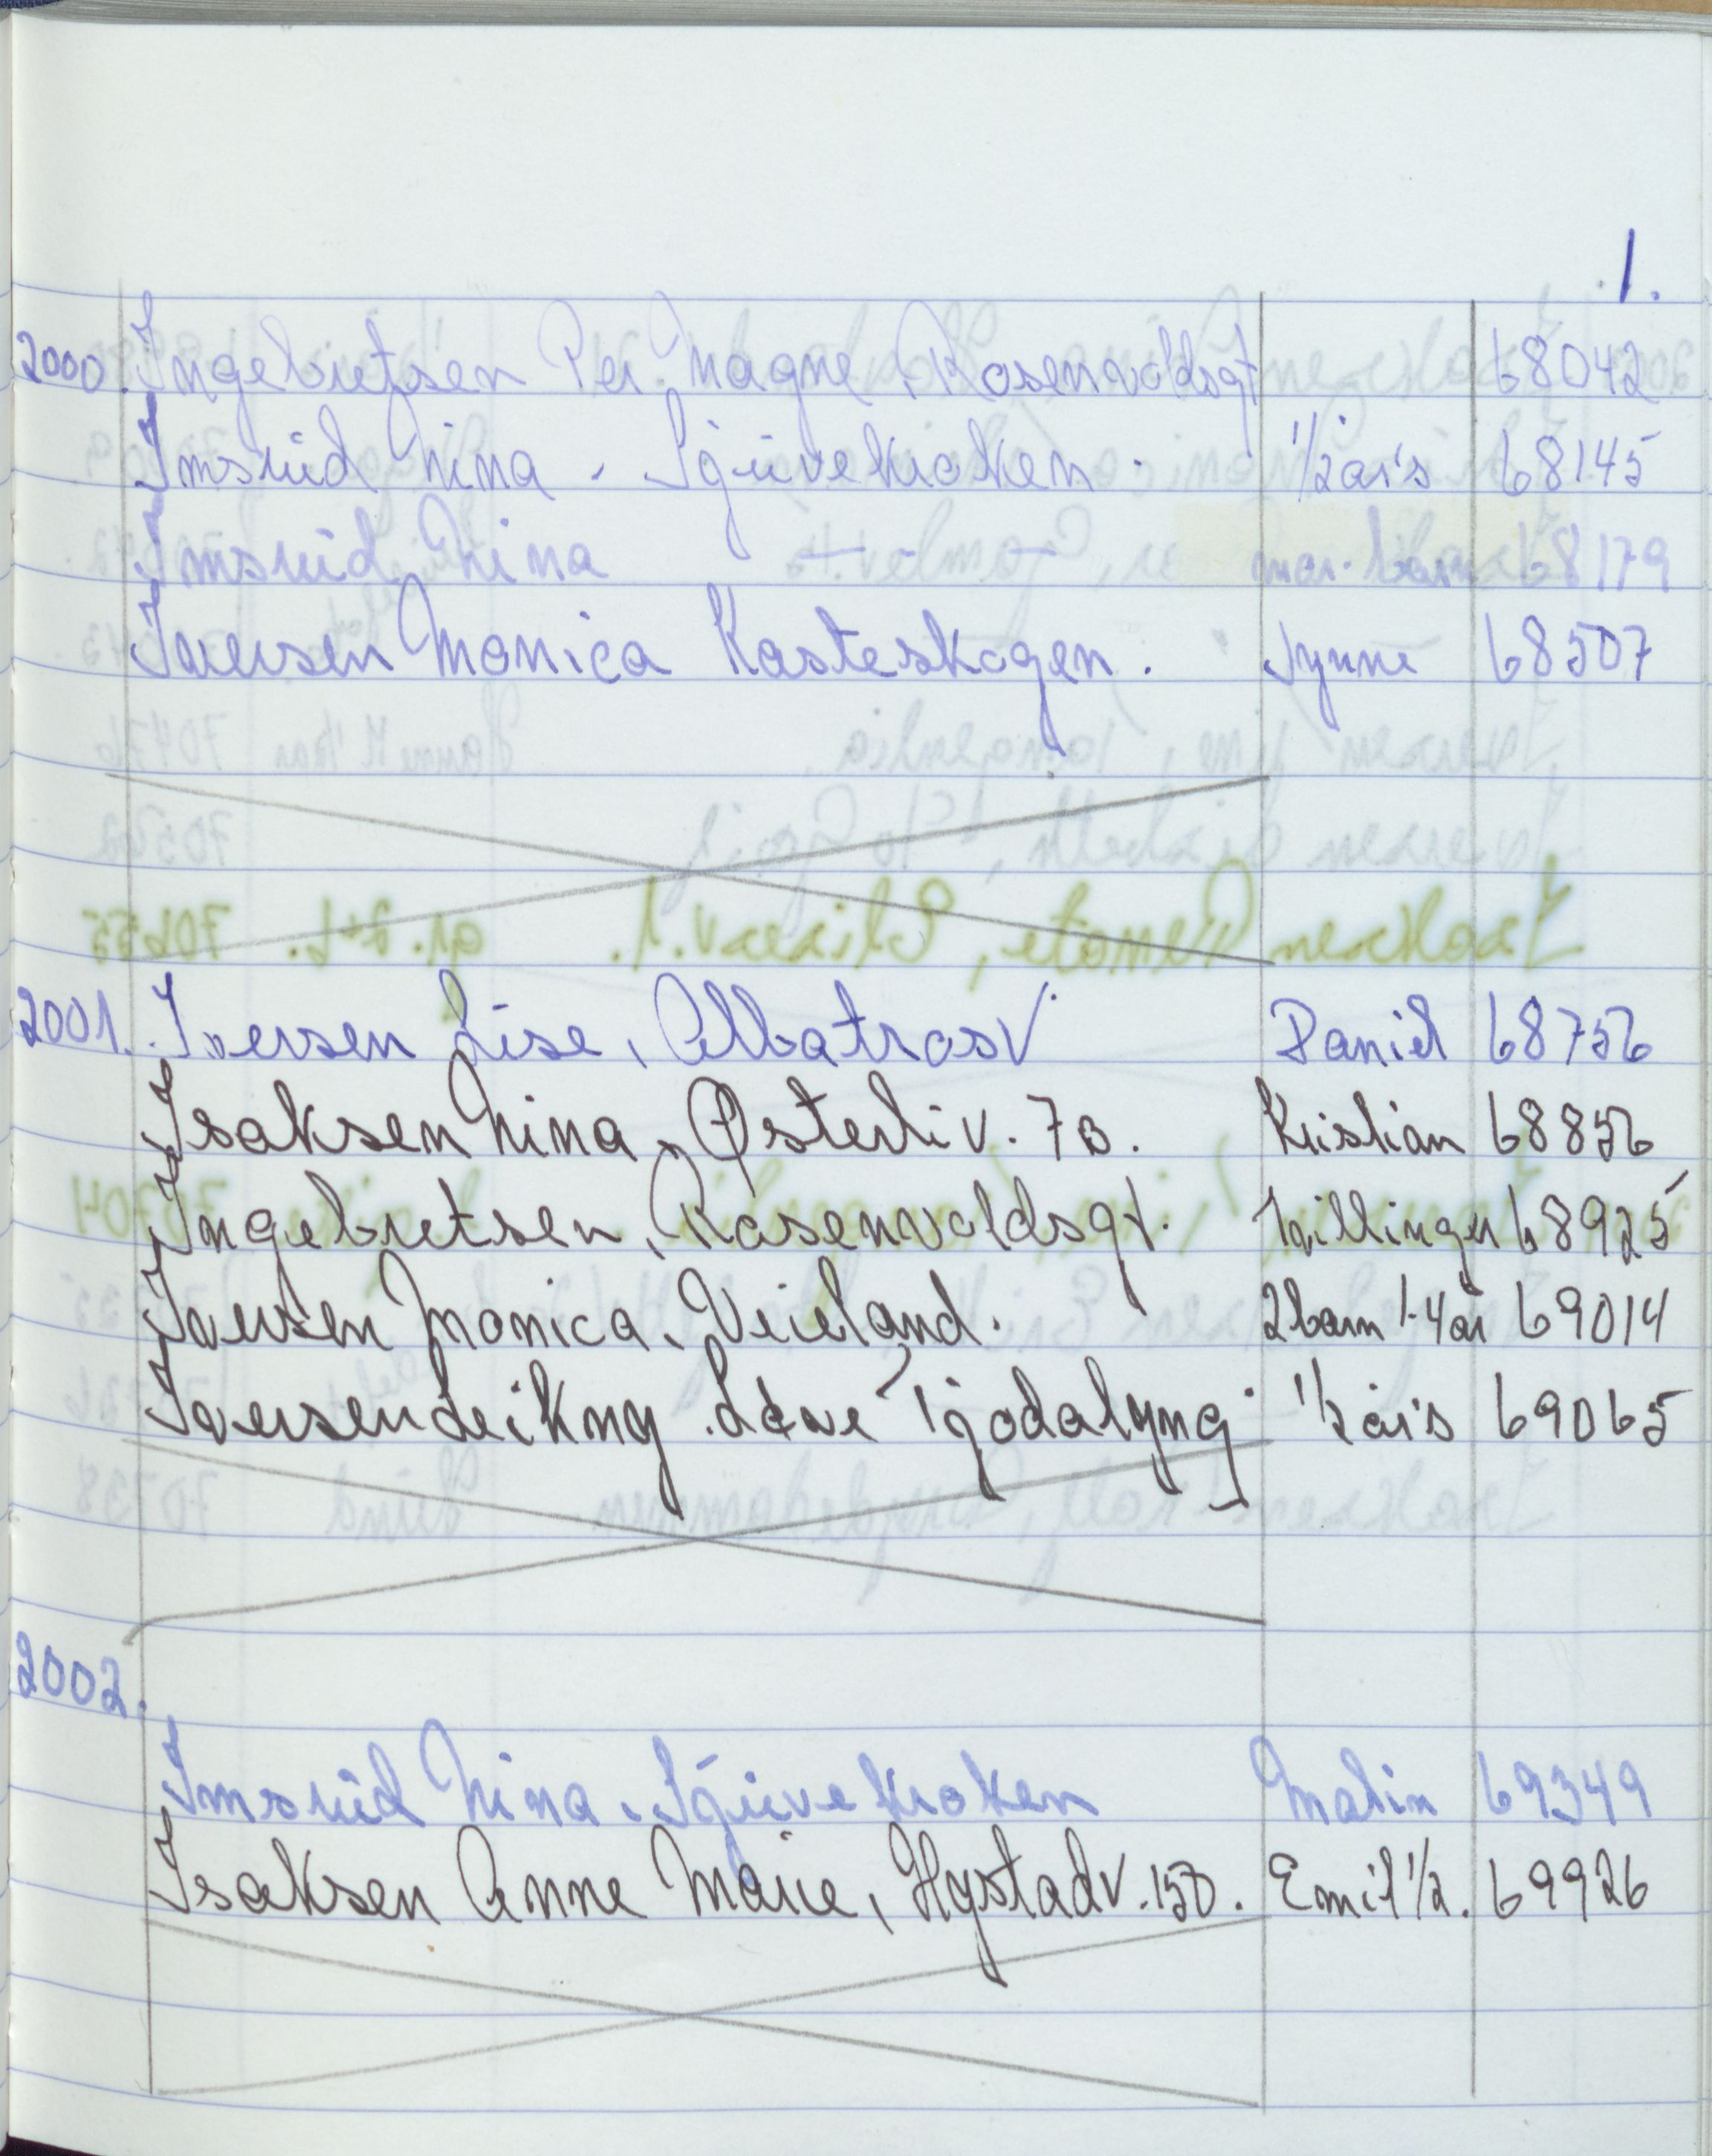 1.
2000. Ingebretsen Per Magne, Rosenvoldsgt 68042
Imsrud Nina - Tjuvekroken. 1/2 års 68145
Imsrud Nina -"- mor-barn 68179
Iversen Monica Kasteskogen. Synne 68507
2001. Iversen Lise, Albatrosv. Daniel 68756
Isaksen Nina, Østerliv. 7B. Kristian 68856
Ingebretsen, Rosenvoldsgt. tvillinger 68925
Iversen Monica, Veieland. 2 barn 1-4 år 69014
Iversen Leikny 1/2 års 69065
2002.
Imsrud Nina, Tjuvekroken Malin 69349
Isaksen Anne Marie, Hystadv. 150. Emil 1/2. 69926